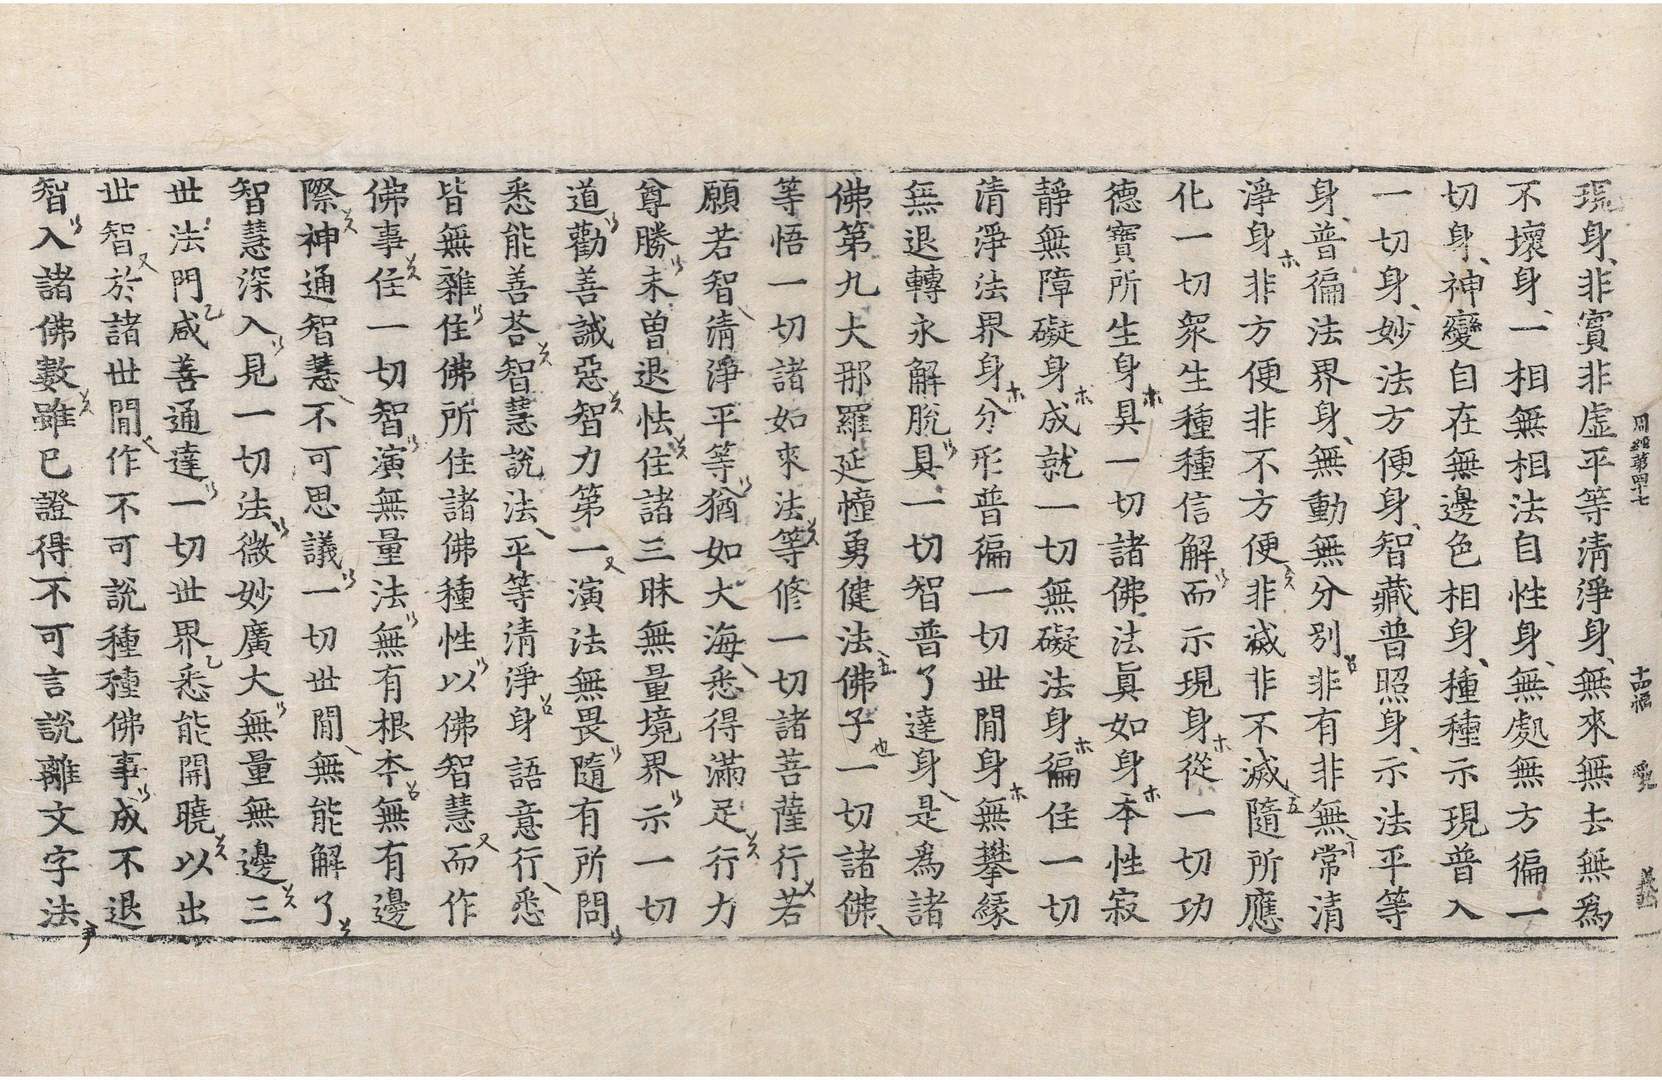 周經第四十七
十四幅
現身非實非虛平等清淨身無來無去無為
不壞身一相無相法自性身無處無方徧一
切身神變自在無邊色相身種種示現普入
一切身妙法方便身智藏普照身示法平等
身普徧法界身無動無分別非有非無常清
淨身非方便非不方便非滅非不滅隨所應
化一切衆生種種信解而示現身從一切功
德寶所生身具一切諸佛法真如身本性寂
靜無障礙身成就一切無礙法身徧住一切
清淨法界身分形普徧一切世間身無攀緣
無退轉永解脫具一切智普了達身是為諸
佛第九大那羅延幢勇健法佛子一切諸佛
等悟一切諸如來法等修一切諸菩薩行若
願若智清淨平等猶如大海悉得滿足行力
尊勝未曾退怯住諸三昧無量境界示一切
道勸善誡惡智力第一演法無畏隨有所問
悉能善荅智慧說法平等清淨身語意行悉
皆無雜住佛所住諸佛種性以佛智慧而作
佛事住一切智演無量法無有根本無有邊
際神通智慧不可思議一切世間無能解了
智慧深入見一切法微妙廣大無量無邊三
世法門咸善通達一切世界悉能開曉以出
世智於諸世間作不可說種種佛事成不退
智入諸佛數雖已證得不可言說離文字法